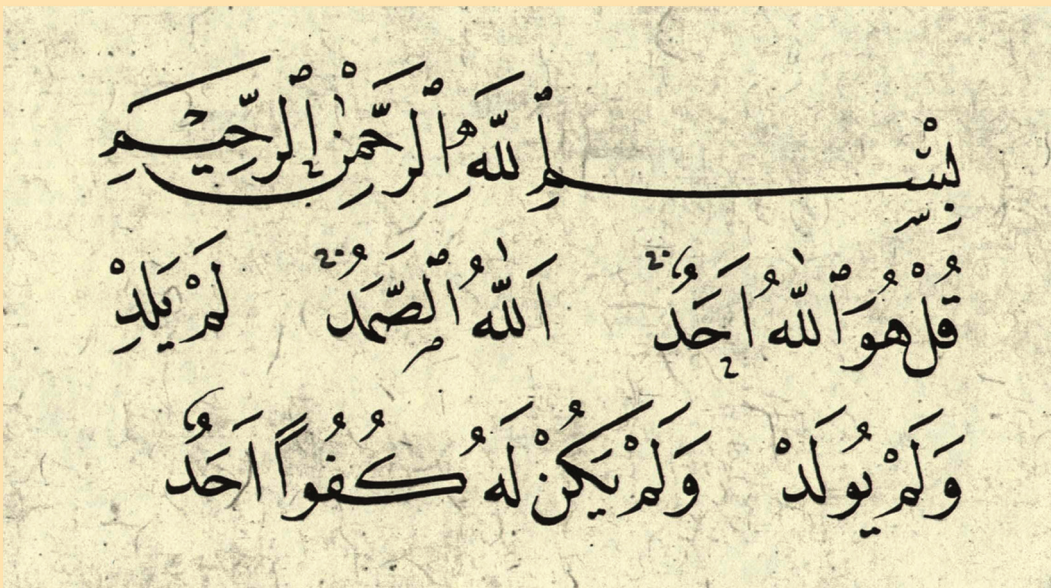 بِسْمِ ٱللّٰهِ ٱلرَّحْمٰنِ ٱلرَّحِيمِ
قُلْ هُوَ ٱللّٰهُ اَحَدٌ اَللّٰهُ ٱلصَّمَدُ لَمْ يَلِدْ
وَلَمْ يُولَدْ وَلَمْ يَكُنْ لَهُ كُفُواً اَحَدٌ